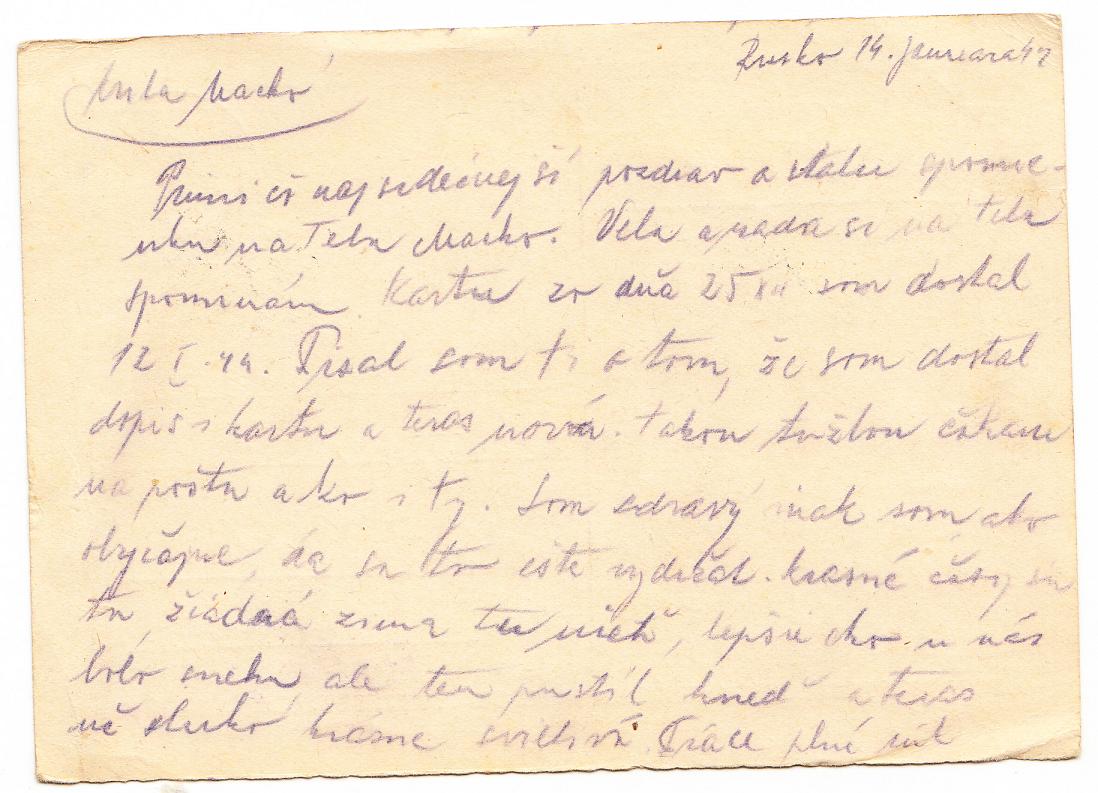 Rusko 14. januara 44
Milá Macko
Prijmi čo najsrdečnejší pozdrav a stálu spomie-
nku na Teba Macko. Vela a rada si na teba
spomínám Kartu zo dňa 25 XII som dostal
12 I. 44. Písal som ti o tom, že som dostal
dopis i kartu a teras novú. takou túžbou čakam
na poštu ako i ty. Som zdravý inak som ako
obyčajne, da sa to ešte vydržat. krasné časy su
tu žiadná zima tu nieh, lepšie ako u nás
bolo snehu ale ten pustil hneď a teras
už slnko krásne svieti Práce plné